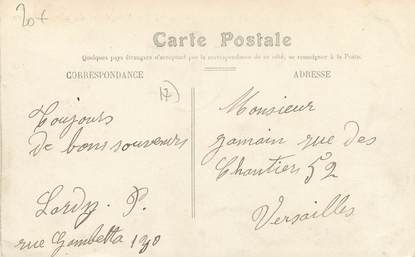 20+
Carte Postale
Quelques pays étrangers n'acceptant pas la correspondance de ce côté, se renseigner à la Poste.
CORRESPONDANCE
ADRESSE
Toujours
de bons souvenirs
Lardy. P.
rue Gambetta 120
Monsieur
gamain rue des
Chantiers 52
Versailles